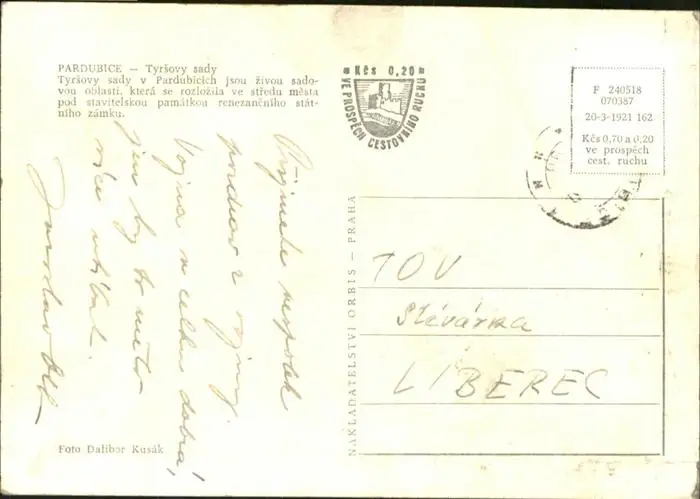 PARDUBICE — Tyršovy sady
Tyršovy sady v Pardubicích jsou živou sado-
vou oblastí, která se rozložila ve středu města
pod stavitelskou památkou renezančního stát-
ního zámku.
Kčs 0,20
VE PROSPĚCH CESTOVNÍHO RUCHU
F 240518
070387
20-3-1921 162
Kčs 0,70 a 0,20
ve prospěch
cest. ruchu
Přijměte
pozdrav z vojny.
Vojna v celku dobrá,
jen by to mělo
více
Jaroslav
NAKLADATELSTVÍ ORBIS — PRAHA
TOV
Slévárna
LIBEREC
Foto Dalibor Kusák